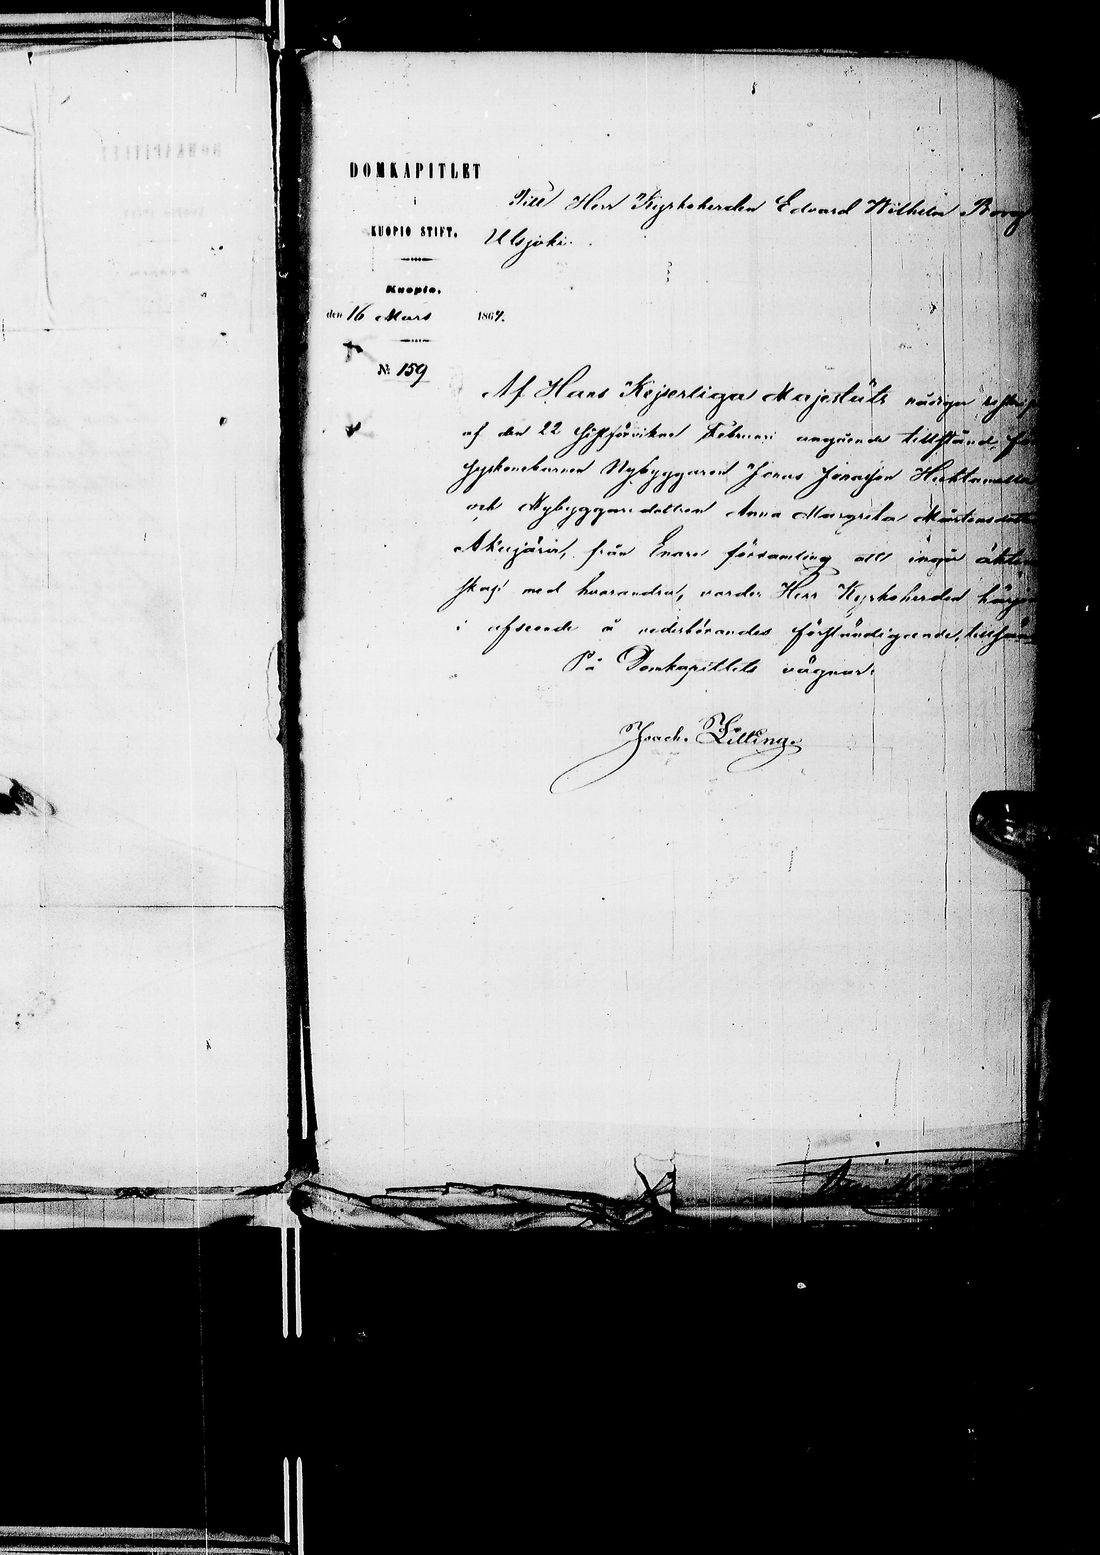 DOMKAPITLET
i
KUOPIO STIFT.
Kuopio,
den 16 Mars 1867.
№ 159
Till Herr Kyrkoherden Edvard Wilhelm Borg
Utsjoki.
Af Hans Kejserliga Majestäts nådiga
af den 22 sistförvikne Februari angående tillstånd för
syskonebarnen Nybyggaren Jonas Jonasson
och Nybyggaredottren Anna Margreta Mårtensdotter
Akujärvi, från Enare församling att ingå äkten
skap med hvarandra, varder Herr Kyrkoherden härje
i afseende å vederbörandes förständigande,
På Domkapitlets vägnar:
Joach. Zitting.